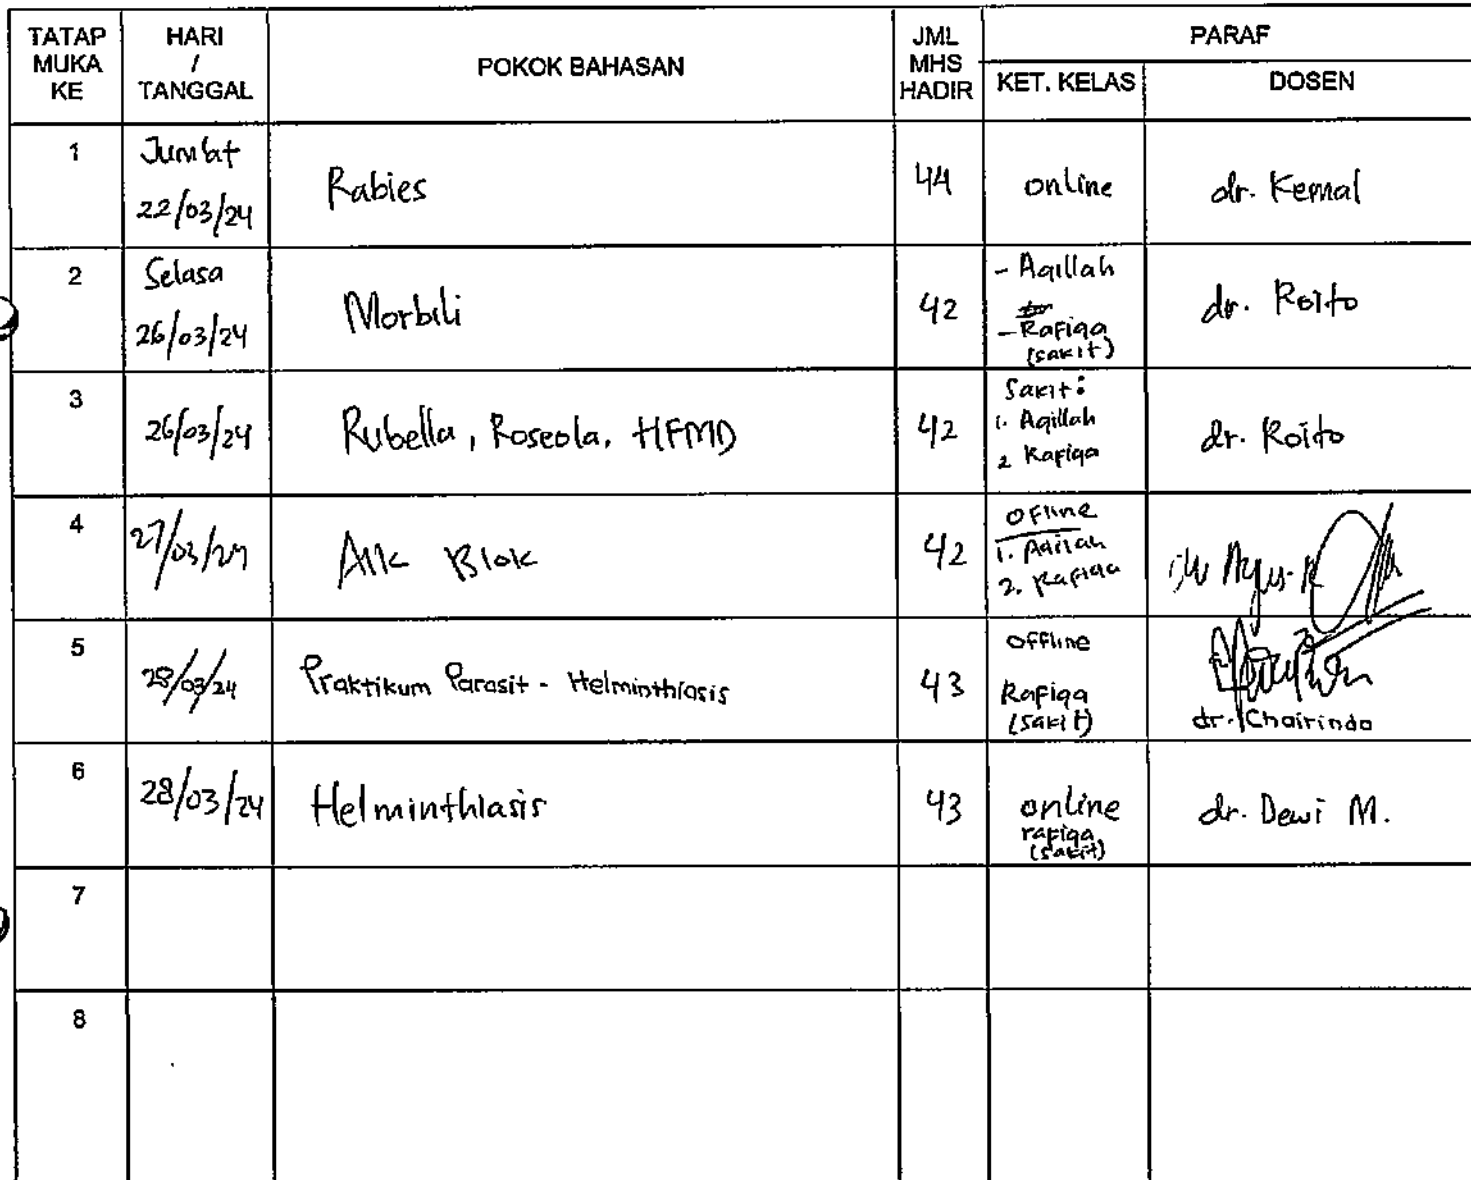 TATAP MUKA KE
HARI / TANGGAL
POKOK BAHASAN
JML MHS HADIR
PARAF
KET. KELAS
DOSEN
1
Jumbat
22/03/24
Rabies
44
online
dr. Kemal
2
Selasa
26/03/24
Morbili
42
- Aqillah
- Rafiqa
(sakit)
dr. Roito
3
26/03/24
Rubella, Roseola, HFMD
42
Sakit:
1. Aqillah
2 Rafiqa
dr. Roito
4
27/03/24
Blok
42
ofline
1. Aqilah
2. Rafiqa
5
28/03/24
Praktikum Parasit - Helminthiasis
43
offline
Rafiqa
(sakit)
dr. Chairinda
6
28/03/24
Helminthiasis
43
online
rafiqa
(sakit)
dr. Dewi M.
7
8